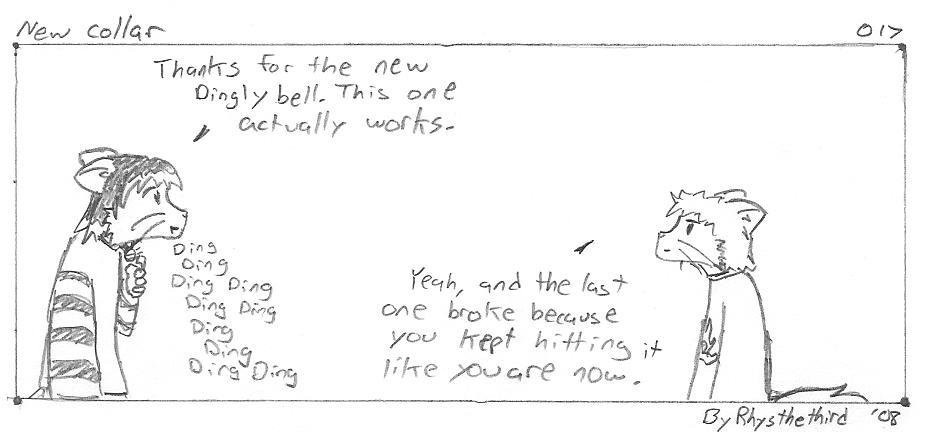 New collar
017
Thanks for the new
Dingly bell. This one
actually works.
Ding
Ding
Ding Ding
Ding Ding
Ding
Ding
Ding Ding
Yeah, and the last
one broke because
you kept hitting it
like you are now.
By Rhysthethird '08